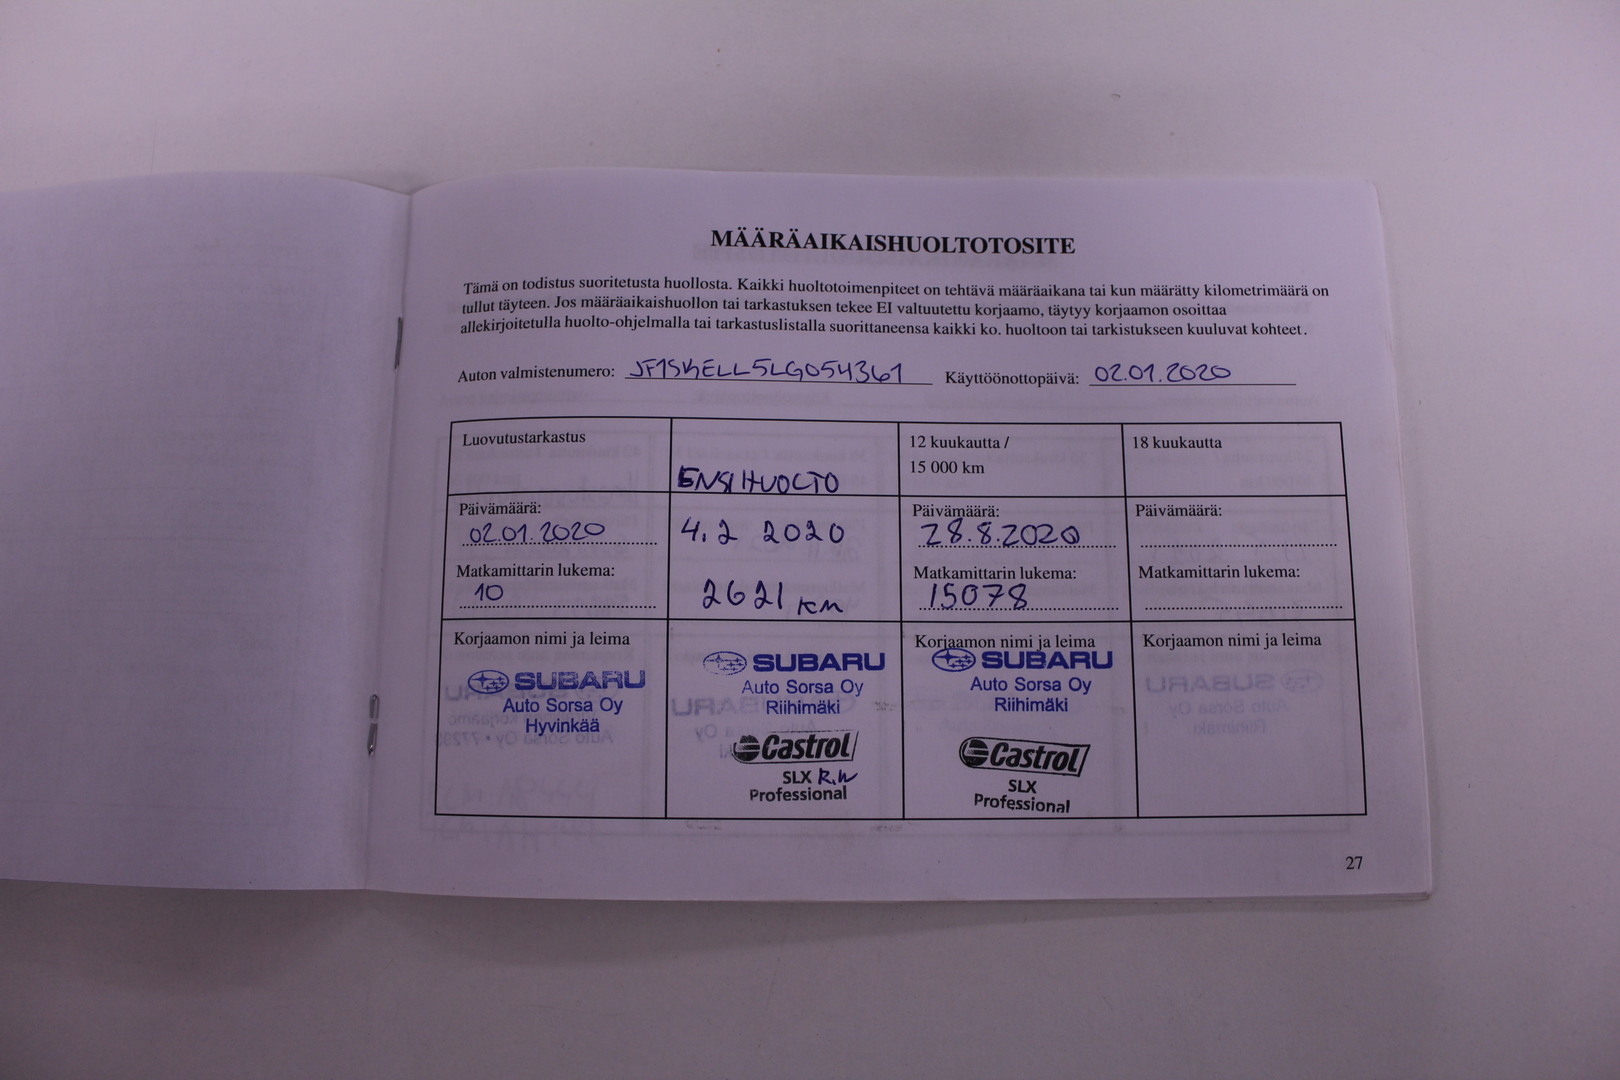 MÄÄRÄAIKAISHUOLTOTOSITE
Tämä on todistus suoritetusta huollosta. Kaikki huoltotoimenpiteet on tehtävä määräaikana tai kun määrätty kilometrimäärä on
tullut täyteen. Jos määräaikaishuollon tai tarkastuksen tekee EI valtuutettu korjaamo, täytyy korjaamon osoittaa
allekirjoitetulla huolto-ohjelmalla tai tarkastuslistalla suorittaneensa kaikki ko. huoltoon tai tarkistukseen kuuluvat kohteet.
Auton valmistenumero: JF1SKELL5LG054361 Käyttöönottopäivä: 02.01.2020
Luovutustarkastus
Päivämäärä:
02.01.2020
Matkamittarin lukema:
10
Korjaamon nimi ja leima
SUBARU
Auto Sorsa Oy
Hyvinkää
ENSIHUOLTO
4.2 2020
2621 KM
SUBARU
Auto Sorsa Oy
Riihimäki
Castrol
SLX R.W
Professional
12 kuukautta /
15 000 km
Päivämäärä:
28.8.2020
Matkamittarin lukema:
15078
Korjaamon nimi ja leima
SUBARU
Auto Sorsa Oy
Riihimäki
Castrol
SLX
Professional
18 kuukautta
Päivämäärä:
Matkamittarin lukema:
Korjaamon nimi ja leima
27